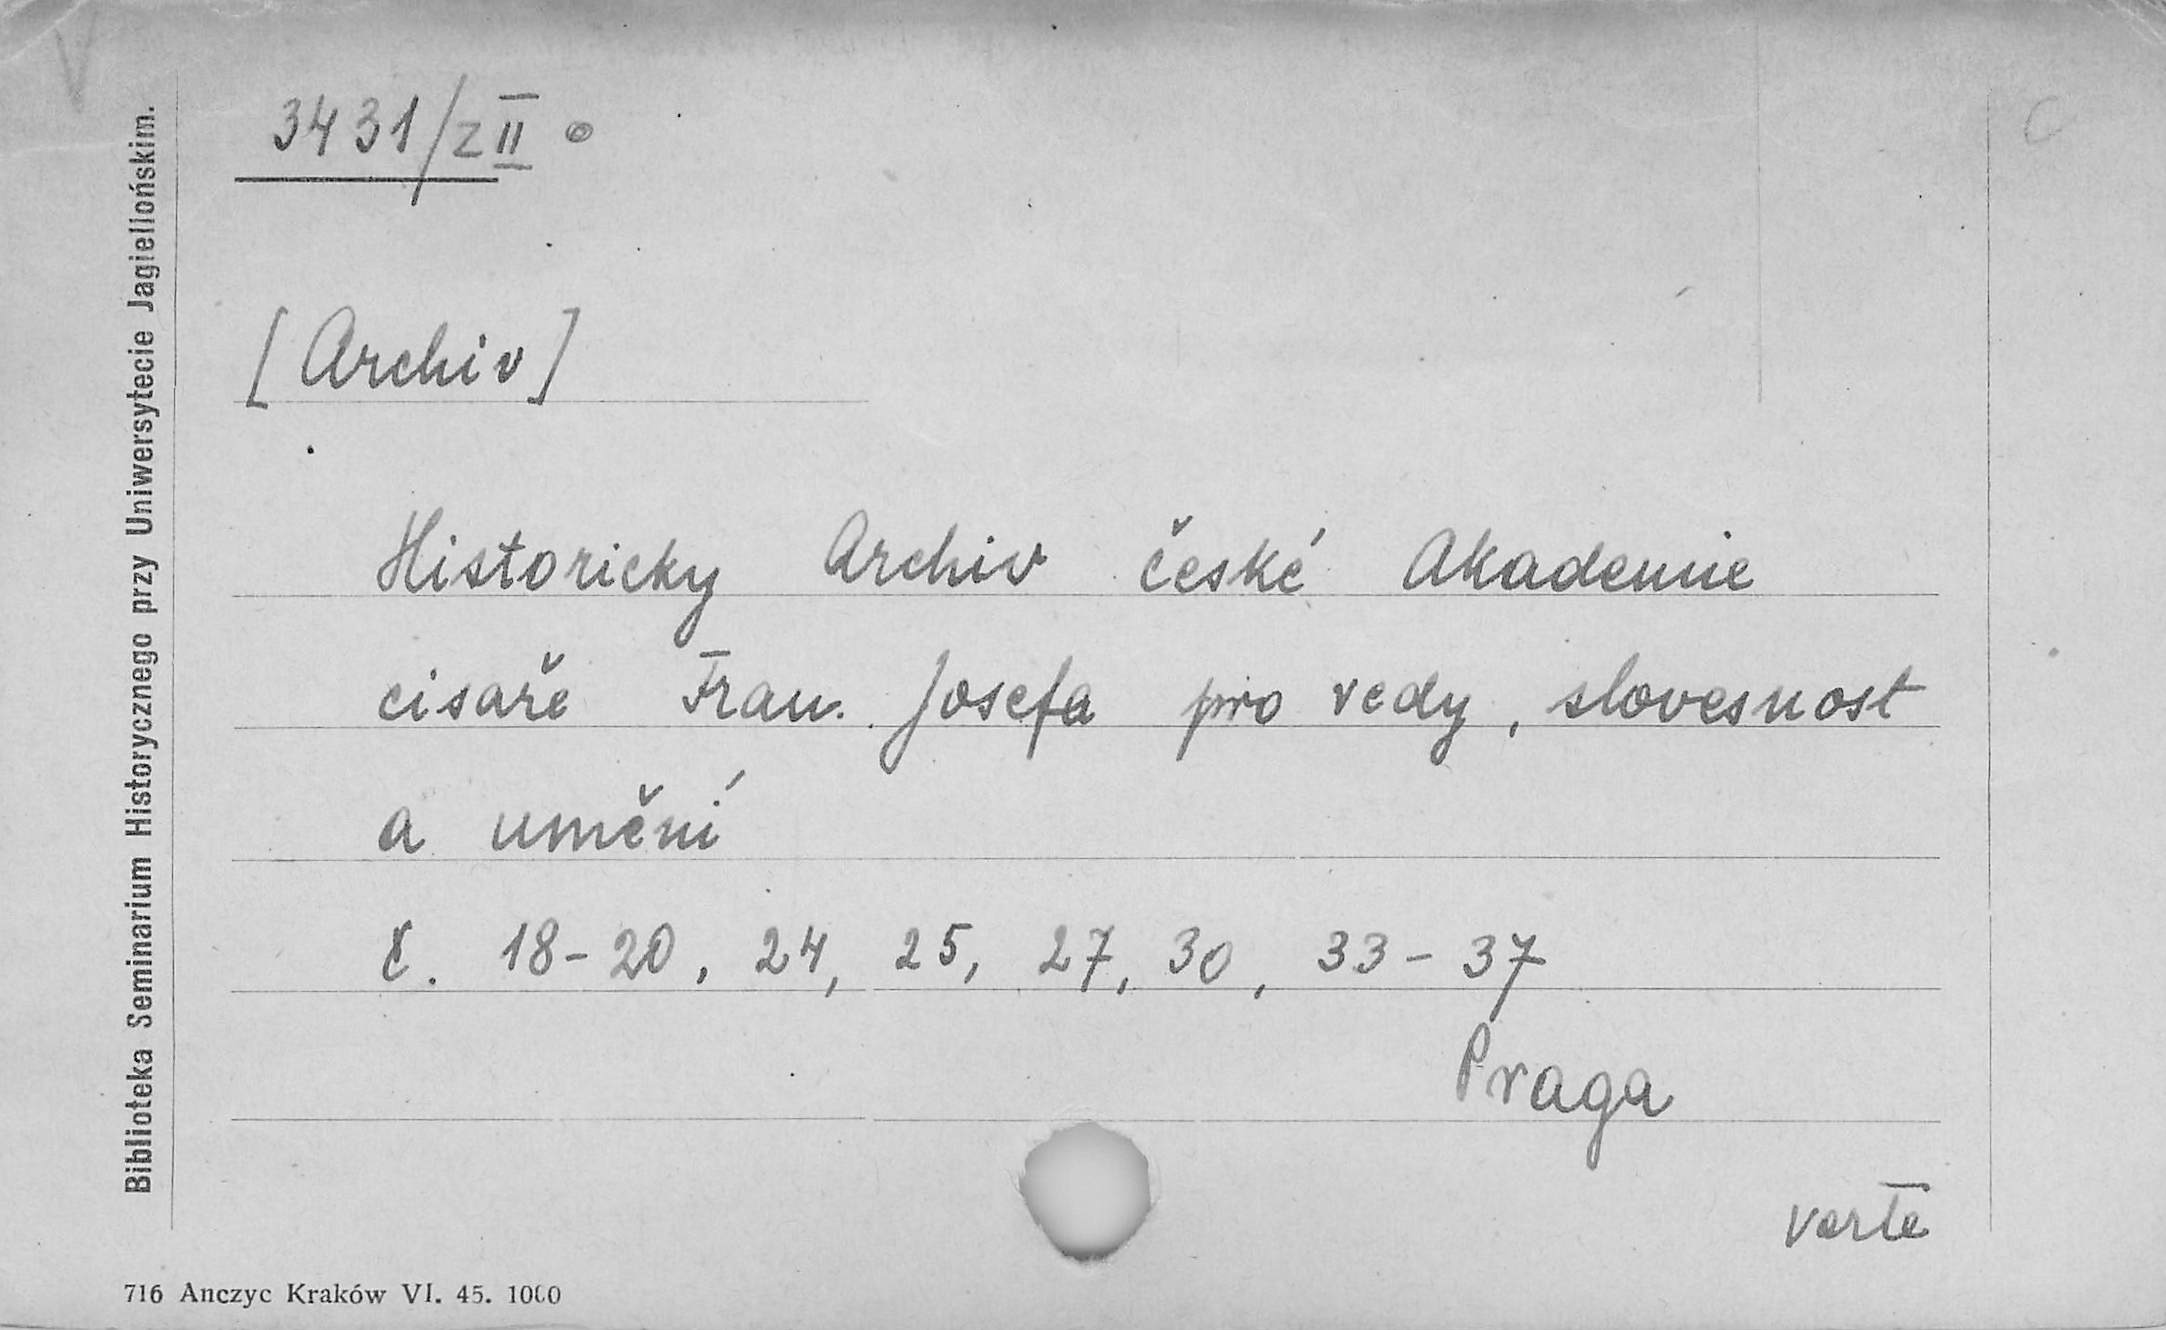 V
3431/z II
C
[Archiv]
Historicky Archiv české Akademie
cisaře Fran. Josefa pro vedy, slovesnost
a uměni´
č. 18-20, 24, 25, 27, 30, 33-37
Praga
verte
Biblioteka Seminarium Historycznego przy Uniwersytecie Jagiellońskim.
716 Anczyc Kraków VI. 45. 1000